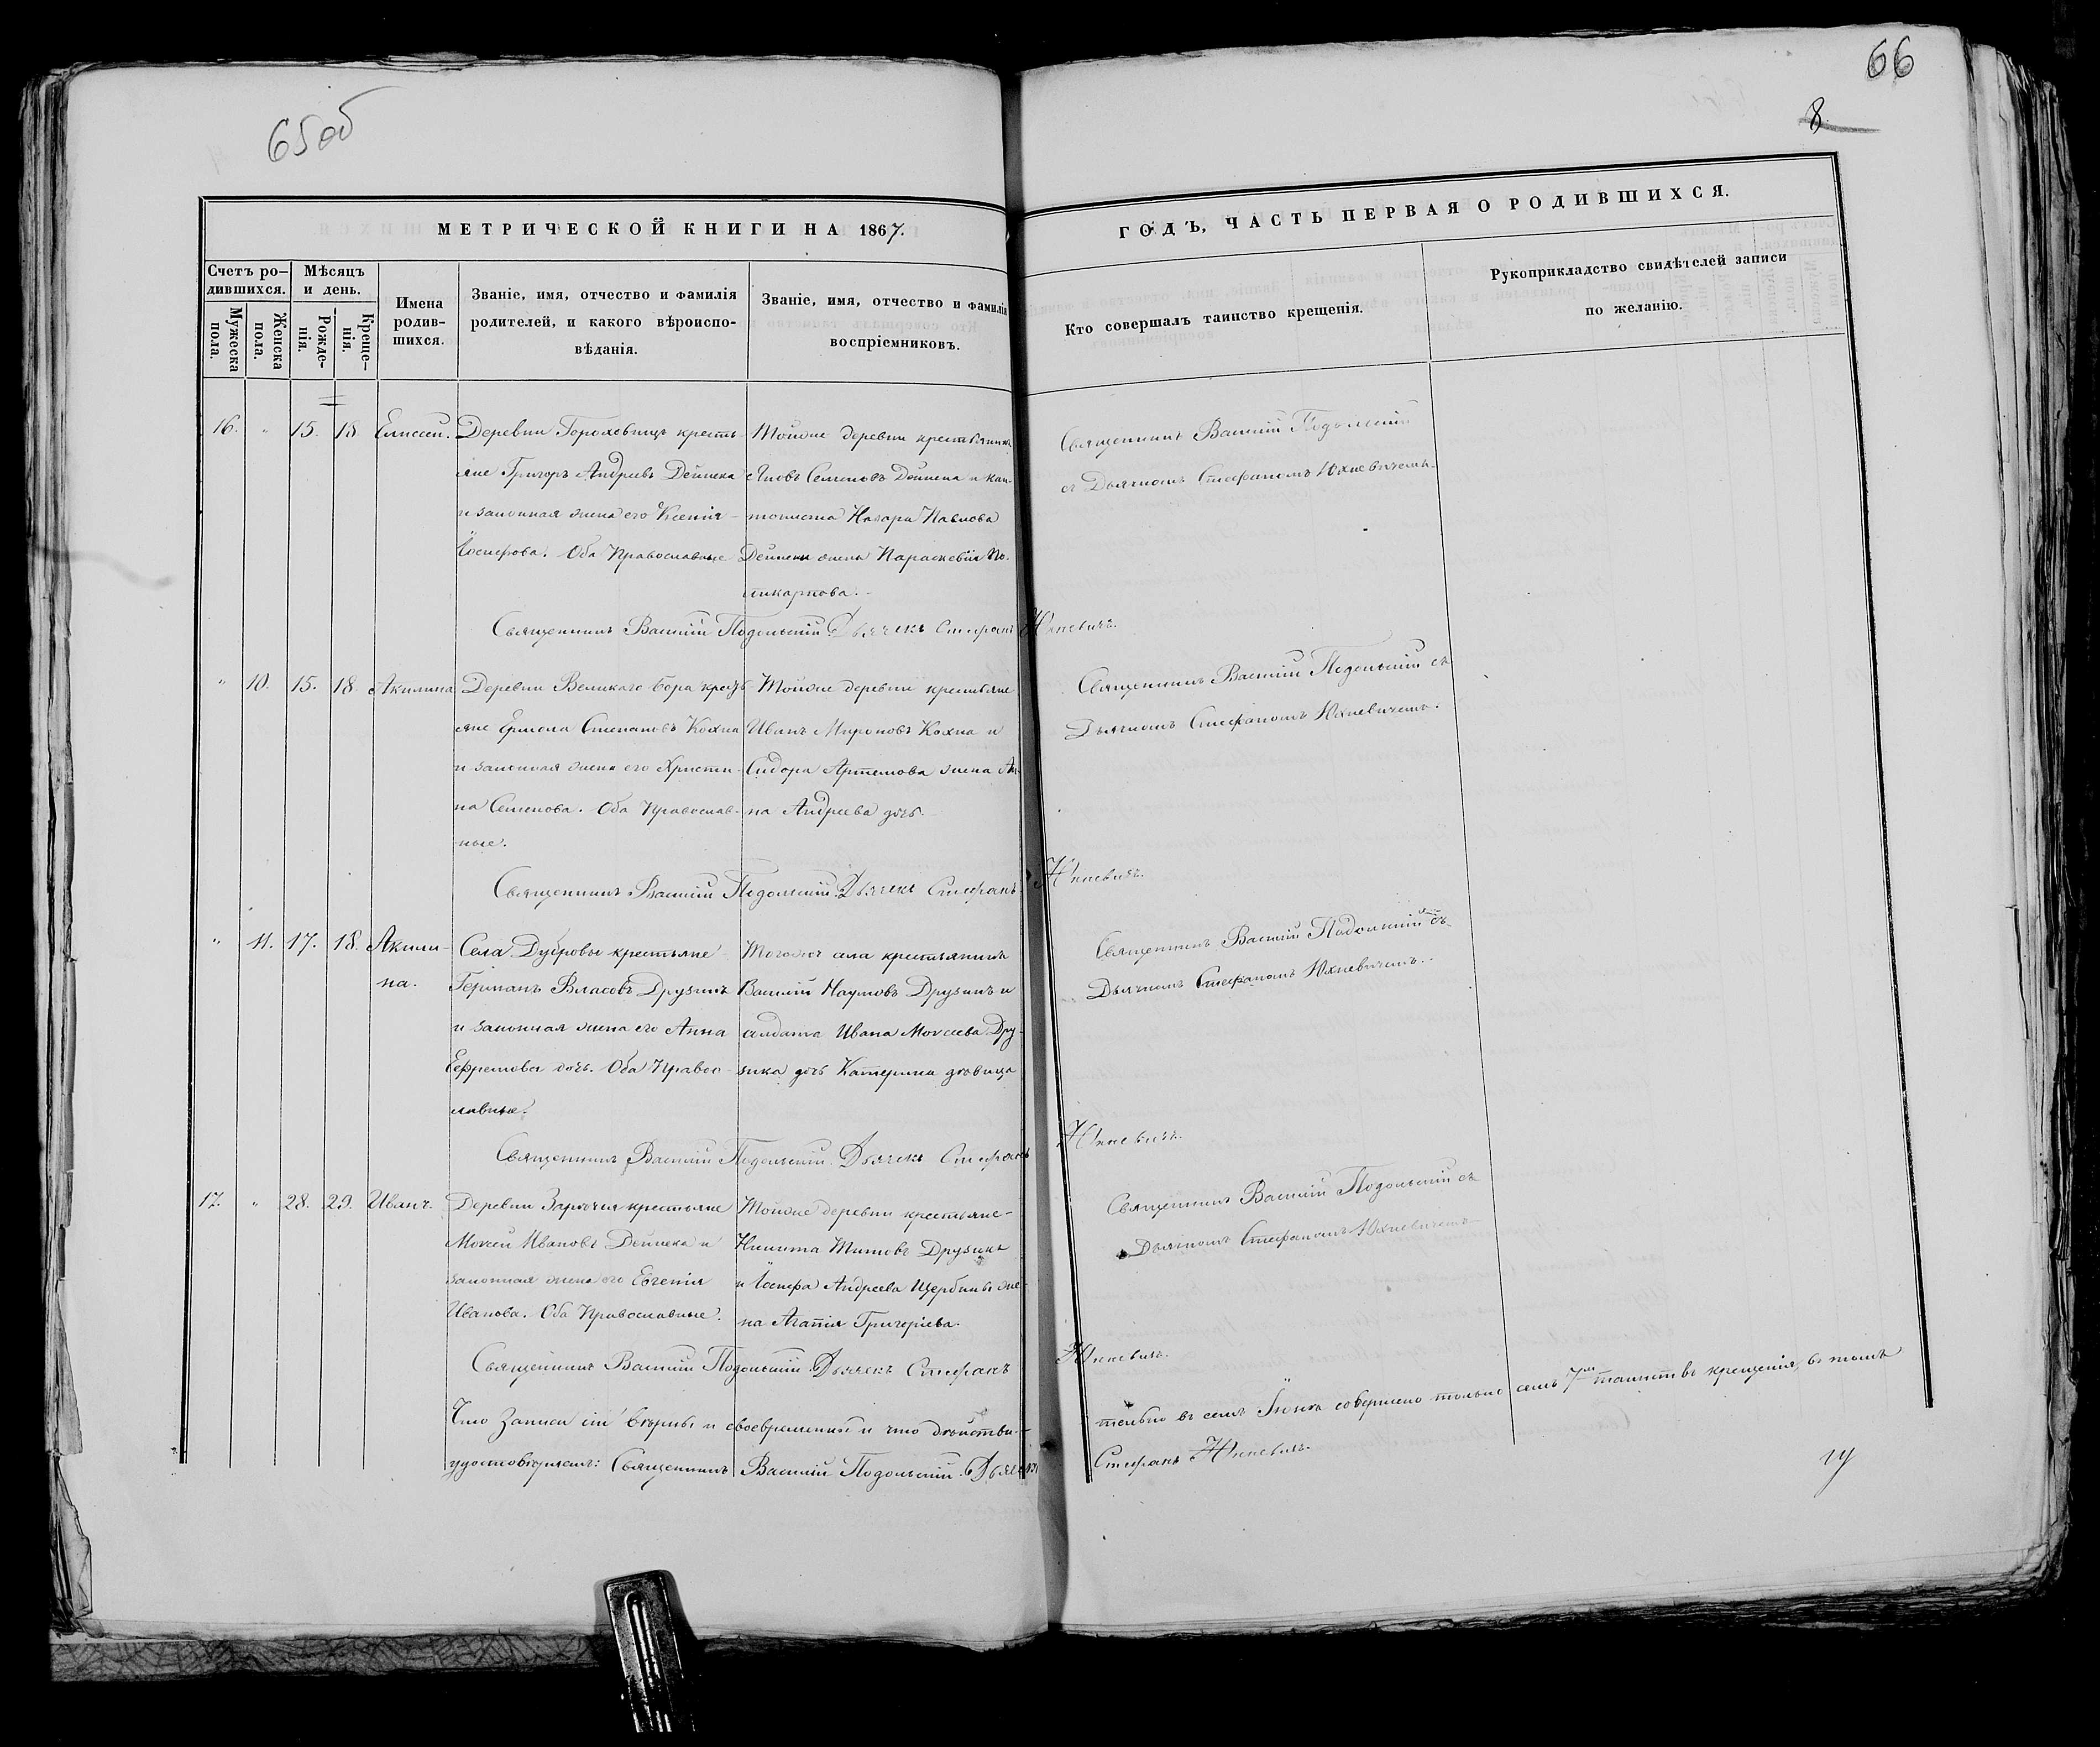 65 об
66
8
МЕТРИЧЕСКОЙ КНИГИ НА 1867.
ГОДЪ, ЧАСТЬ ПЕРВАЯ О РОДИВШИХСЯ.
Счетъ ро-
дившихся.
Мужеска
пола.
Женска
пола.
Мѣсяцъ
и день.
Рожде-
нія.
Креще-
нія.
Имена
родив-
шихся.
Званіе, имя, отчество и фамилія
родителей, и какого вѣроиспо-
вѣданія.
Званіе, имя, отчество и фамилія
воспріемниковъ.
Кто совершалъ таинство крещенія.
Рукоприкладство свидѣтелей записи
по желанію.
16. " 15. 18. Елисей.
Деревни Гороховищъ кресть-
яне Григоръ Андреевъ Дейнека
и законная жена его Ксенія
Іосифова. Оба Православные
Тойже деревни крестьянинъ
Яковъ Семеновъ Дейнека и кан-
тониста Назара Павлова
Дейнеки жена Параскевія По-
ликарпова.
Священникъ Василій Подольскій
съ Дьячкомъ Стефаномъ Юхневичемъ.
Священникъ Василій Подольскій. Дьячекъ Стефанъ Юхневичъ.
" 10. 15. 18. Акилина
Деревни Великаго Бора кресть
яне Ермола Степановъ Кохна
и законная жена его Христи-
на Семенова. Оба Православ-
ные.
Тойже деревни крестьяне
Иванъ Мироновъ Кохна и
Сидора Артемова жена Ан-
на Андреева дочь.
Священникъ Василій Подольскій съ
Дьячкомъ Стефаномъ Юхневичемъ.
Священникъ Василій Подольскій. Дьячекъ Стефанъ Юхневичъ.
" 11. 17. 18. Акили-
на.
Села Дубровы крестьяне
Германъ Власовъ Друзикъ
и законная жена его Анна
Ефремова дочь. Оба Правос-
лавные.
Тогоже села крестьянинъ
Василій Наумовъ Друзикъ и
солдата Ивана Моисеева Дру-
зика дочь Катерина дѣвица
Священникъ Василій Подольскій съ
Дьячкомъ Стефаномъ Юхневичемъ.
Священникъ Василій Подольскій. Дьячекъ Стефанъ Юхневичъ.
17. " 28. 29. Иванъ.
Деревни Заречья крестьяне
Моисей Ивановъ Дейнека и
законная жена его Евгенія
Иванова. Оба Православные.
Тойже деревни крестьяне
Никита Титовъ Друзикъ
и Іосифа Андреева Щербины же-
на Агапія Григоріева.
Священникъ Василій Подольскій съ
Дьячкомъ Стефаномъ Юхневичемъ
Священникъ Василій Подольскій. Дьячекъ Стефанъ Юхневичъ.
Что Записи сіи вѣрны и своевременны и что дѣйстви-
тельно въ семъ Іюнѣ совершено только семь 7 таинствъ крещенія, въ томъ
удостовѣряемъ: Священникъ Василій Подольскій. Дьячекъ
Стефанъ Юхневичъ.